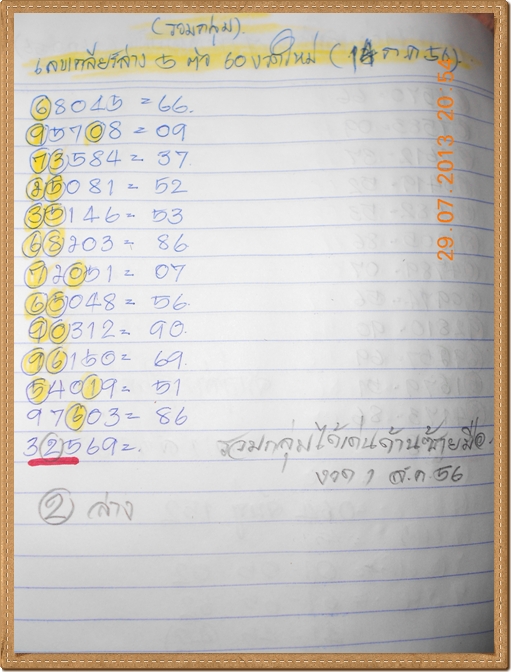 (รวมกลุ่ม).
เลขเกลียร์ล่าง 5 ตัว 60 งวดใหม่ (14 ก.ค 56)
68045 = 66.
95708 = 09
73584 = 37.
25081 = 52
35146 = 53
68203 = 86
72051 = 07
65048 = 56.
90312 = 90.
96150 = 69.
54019 = 51
97603 = 86
32569 = .
รวมกลุ่มได้เด่นด้านซ้ายมือ.
งวด 1 ส.ค 56
2 ล่าง
29.07.2013 20:54